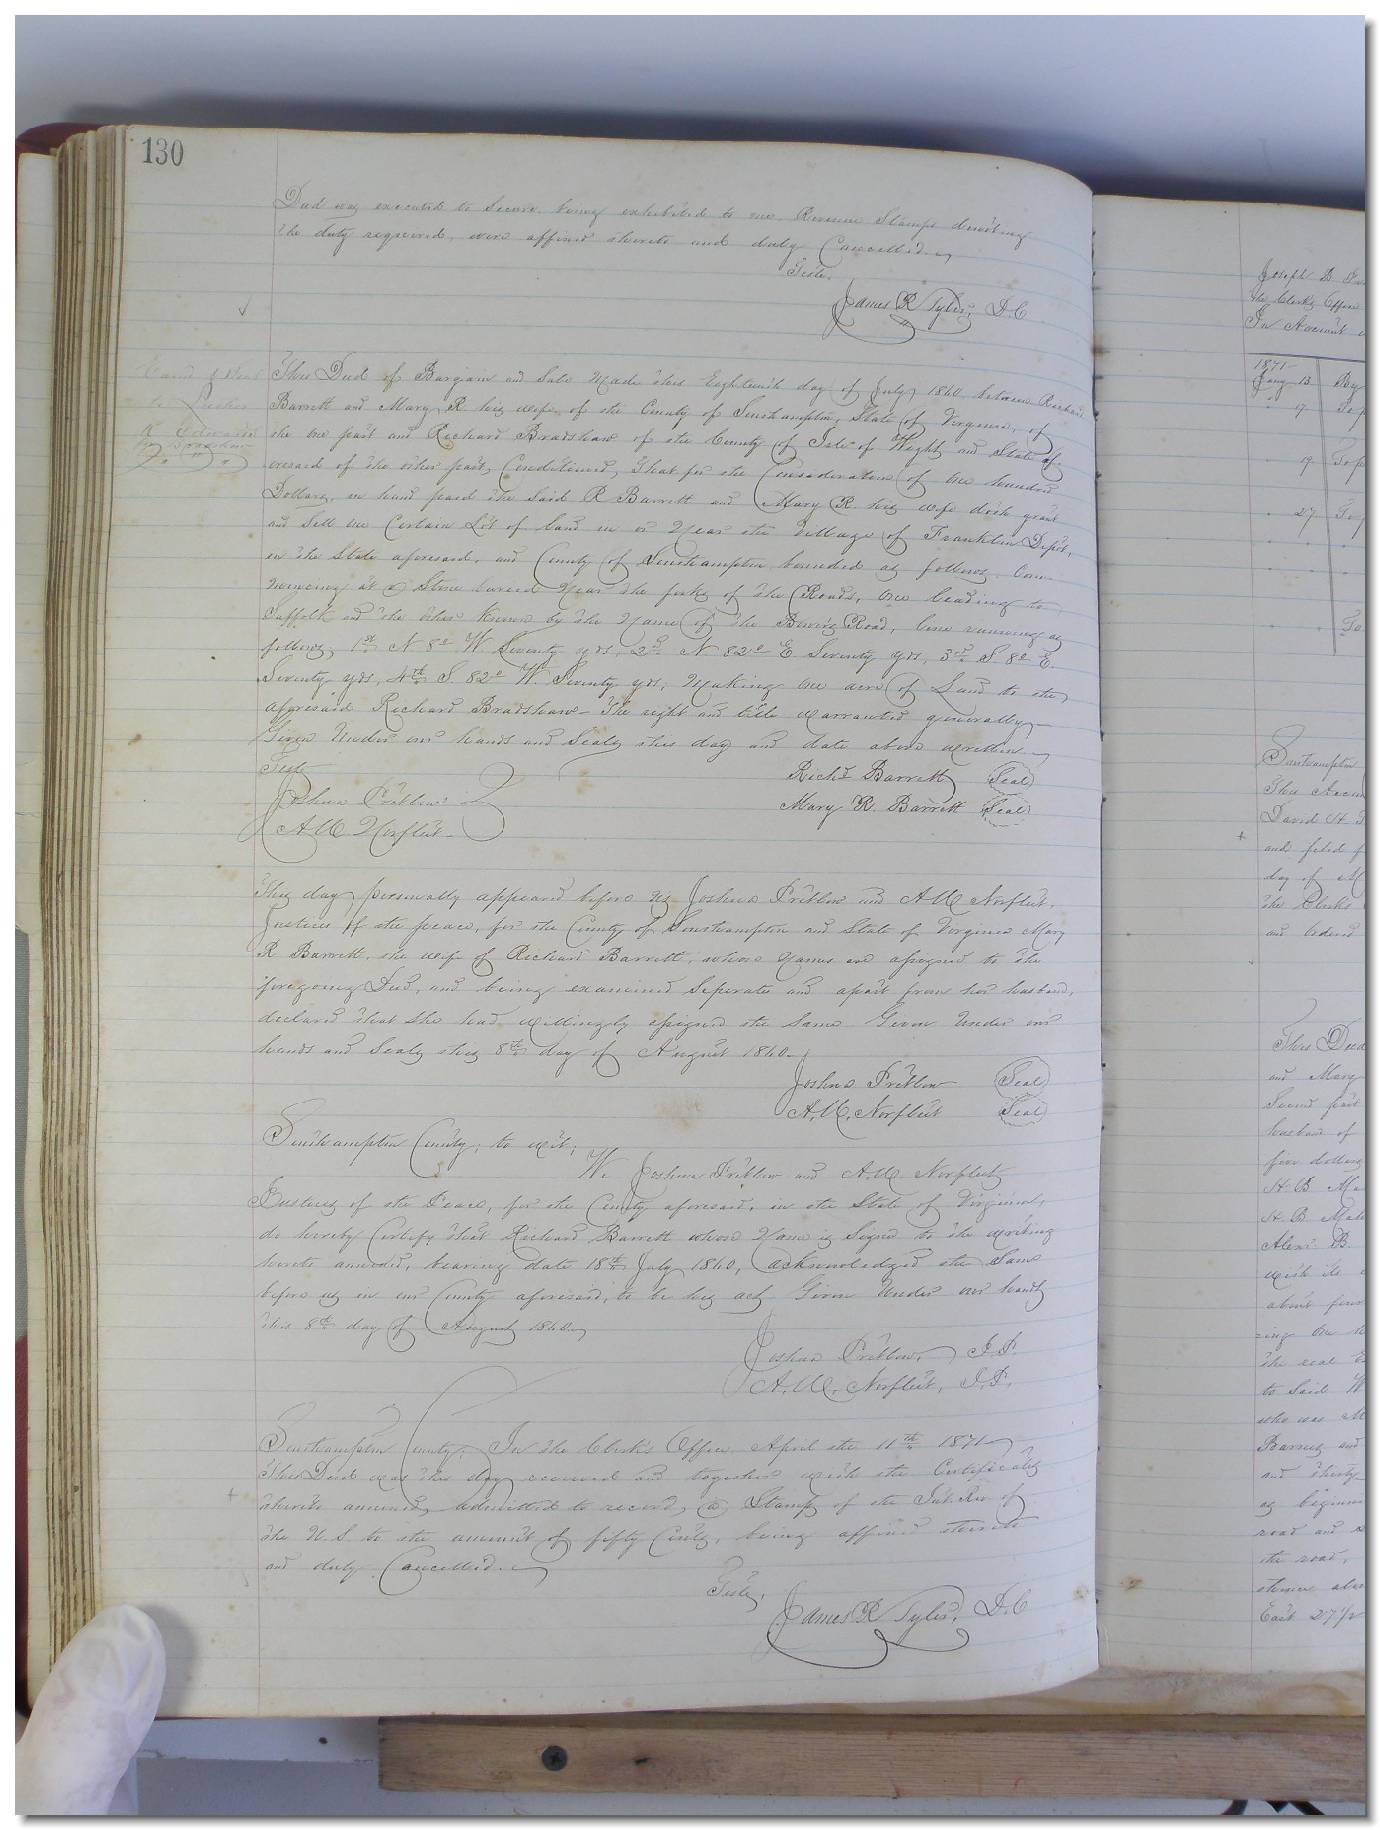 130
Deed was executed to secure, being exhibited to me. Revenue Stamps denoting
the duty required, were affixed thereto and duly Cancelled.
Teste.
James R Tyler, D.C
This Deed of Bargain and Sale Made this Eighteenth day of July 1860 between Richard
Barrett and Mary R his wife of the County of Southampton, State of Virginia, of
the one part and Richard Bradshaw of the County of Isle of Wight and State af-
oresaid of the other part, Conditioned, That for the Consideration of One hundred
Dollars, in hand paid the Said R Barrett and Mary R. his wife doth grant
and Sell one Certain Lot of land in or Near the Village of Franklin Depot,
in the State aforesaid, and County of Southampton bounded as follows. Com-
mencing at a Stone buried Near the forks of the Roads, One leading to
Suffolk and the other Known by the Name of the Road, line running as
follows, 1st N 8° W. Seventy yds, 2nd N 82° E Seventy yds, 3rd S. 8° E.
Seventy yds, 4th S 82° W. Seventy yds, Making One acre of Land to the
aforesaid Richard Bradshaw- The right and title warranted generally-
Given Under our hands and Seals this day and date above written.
Teste Richd Barrett (Seal)
Joshua Pretlow Mary R. Barrett (Seal)
A.M Norfleet-
This day personally appeared before us Joshua Pretlow and A M Norfleet.
Justices of the peace, for the County of Southampton and State of Virginia Mary
R Barrett, the wife of Richard Barrett, whose Names are assigned to the
foregoing Deed, and being examined Seperate and apart from her husband,
declared that She had willingly assigned the Same Given Under our
hands and Seals this 8th day of August 1860-
Joshua Pretlow (Seal)
A.M. Norfleet (Seal)
Southampton County, to wit;
We Joshua Pretlow and A.M. Norfleet
Justices of the Peace, for the County aforesaid, in the State of Virginia,
do hereby Certify that Richard Barrett whose Name is Signed to the writing
hereto annexed, bearing date 18th July 1860, acknowledged the Same
before us in our County aforesaid, to be his act Given Under our hands
this 8th day of August 1860.
Joshua Pretlow, J.P.
A.M. Norfleet, J.P.
Southampton County. In the Clerk's Office April the 11th 1871
This Deed was this day received and together with the Certificates
thereto annexed, admitted to record, a Stamp of the Int. Rev of
the U.S. to the amount of fifty Cents, being affixed thereto
and duly Cancelled.
Teste,
James R Tyler, D.C
Joseph D
the Clerk's Office
In Account
1871-
Jany 13 By
" 17 To
" 19 To
" 27 To
To
Southampton
This Accou
David H.
and filed f
day of M
the Clerks
and Ordered
This Deed
and Mary
Second part
husband of
five dollars
H. B. Ma
H. B. Mah
Alexr B.
with its
about four
zing One h
the real E
to Said W
who was M
Barnes and
and thirty
as beginn
road and
the road,
thence alo
East 27 1/2